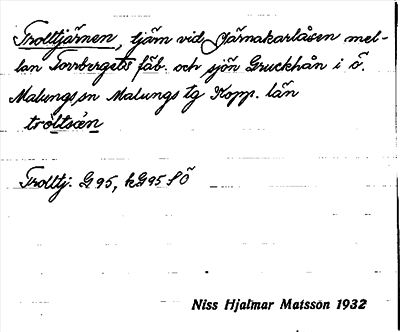 Trolltjärnen, tjärn vid Järnakarlåsen mel-
lan Torrbergets fäb. och sjön Gruckhån i ö.
Malungs sn Malungs tg Kopp. län
tròltsæ̀n
Trolltj. G 95, kG 95 SÖ
Niss Hjalmar Matsson 1932